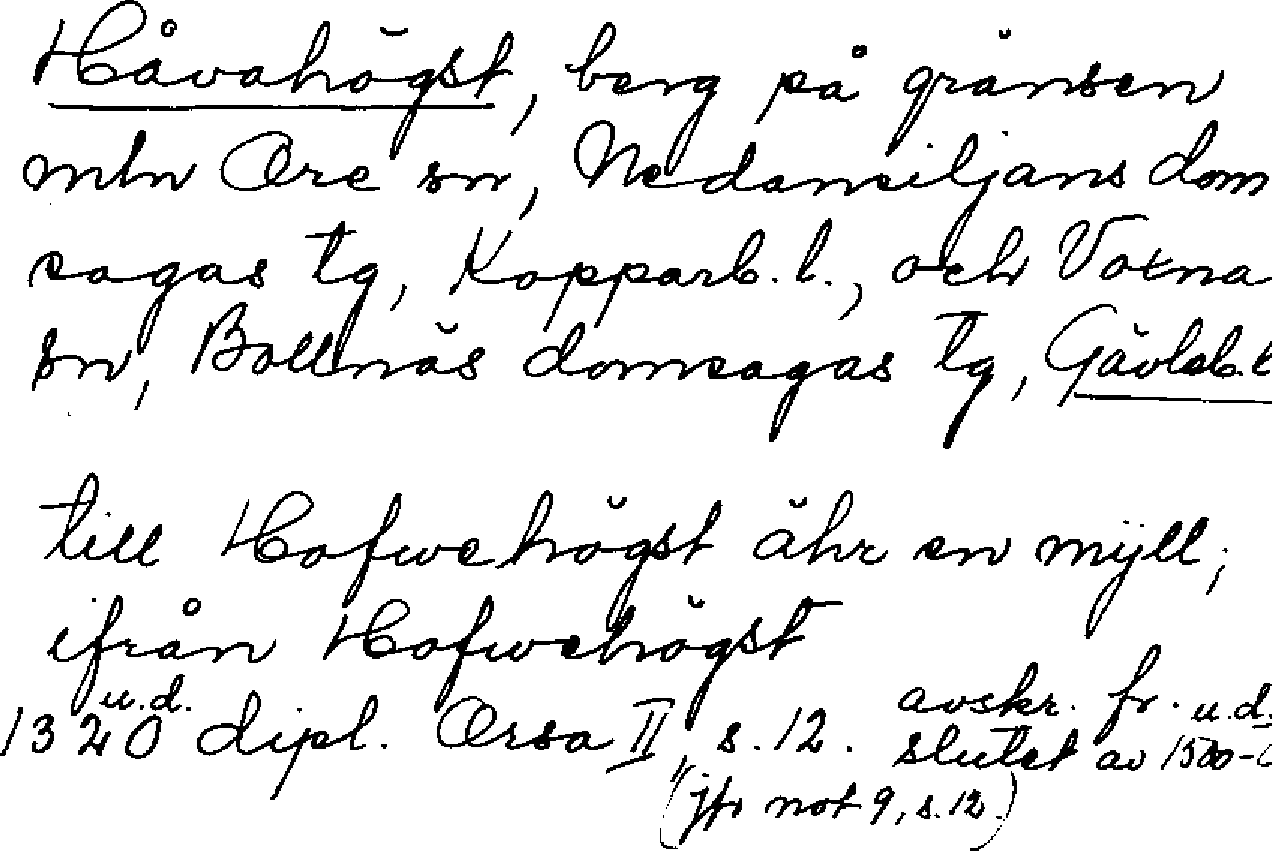 Håvahögst, berg på gränsen
mln Ore sn, Nedansiljans dom
sagas tg, Kopparb. l., och Voxna
sn, Bollnäs domsagas tg, Gävleb. l
till Hofwehögst ähr en mÿll;
ifrån Hofwehögst
1320 u.d. dipl. Orsa II, s. 12. avskr. fr. u.d.
slutet av 1500-
(jfr not 9, s. 12.)